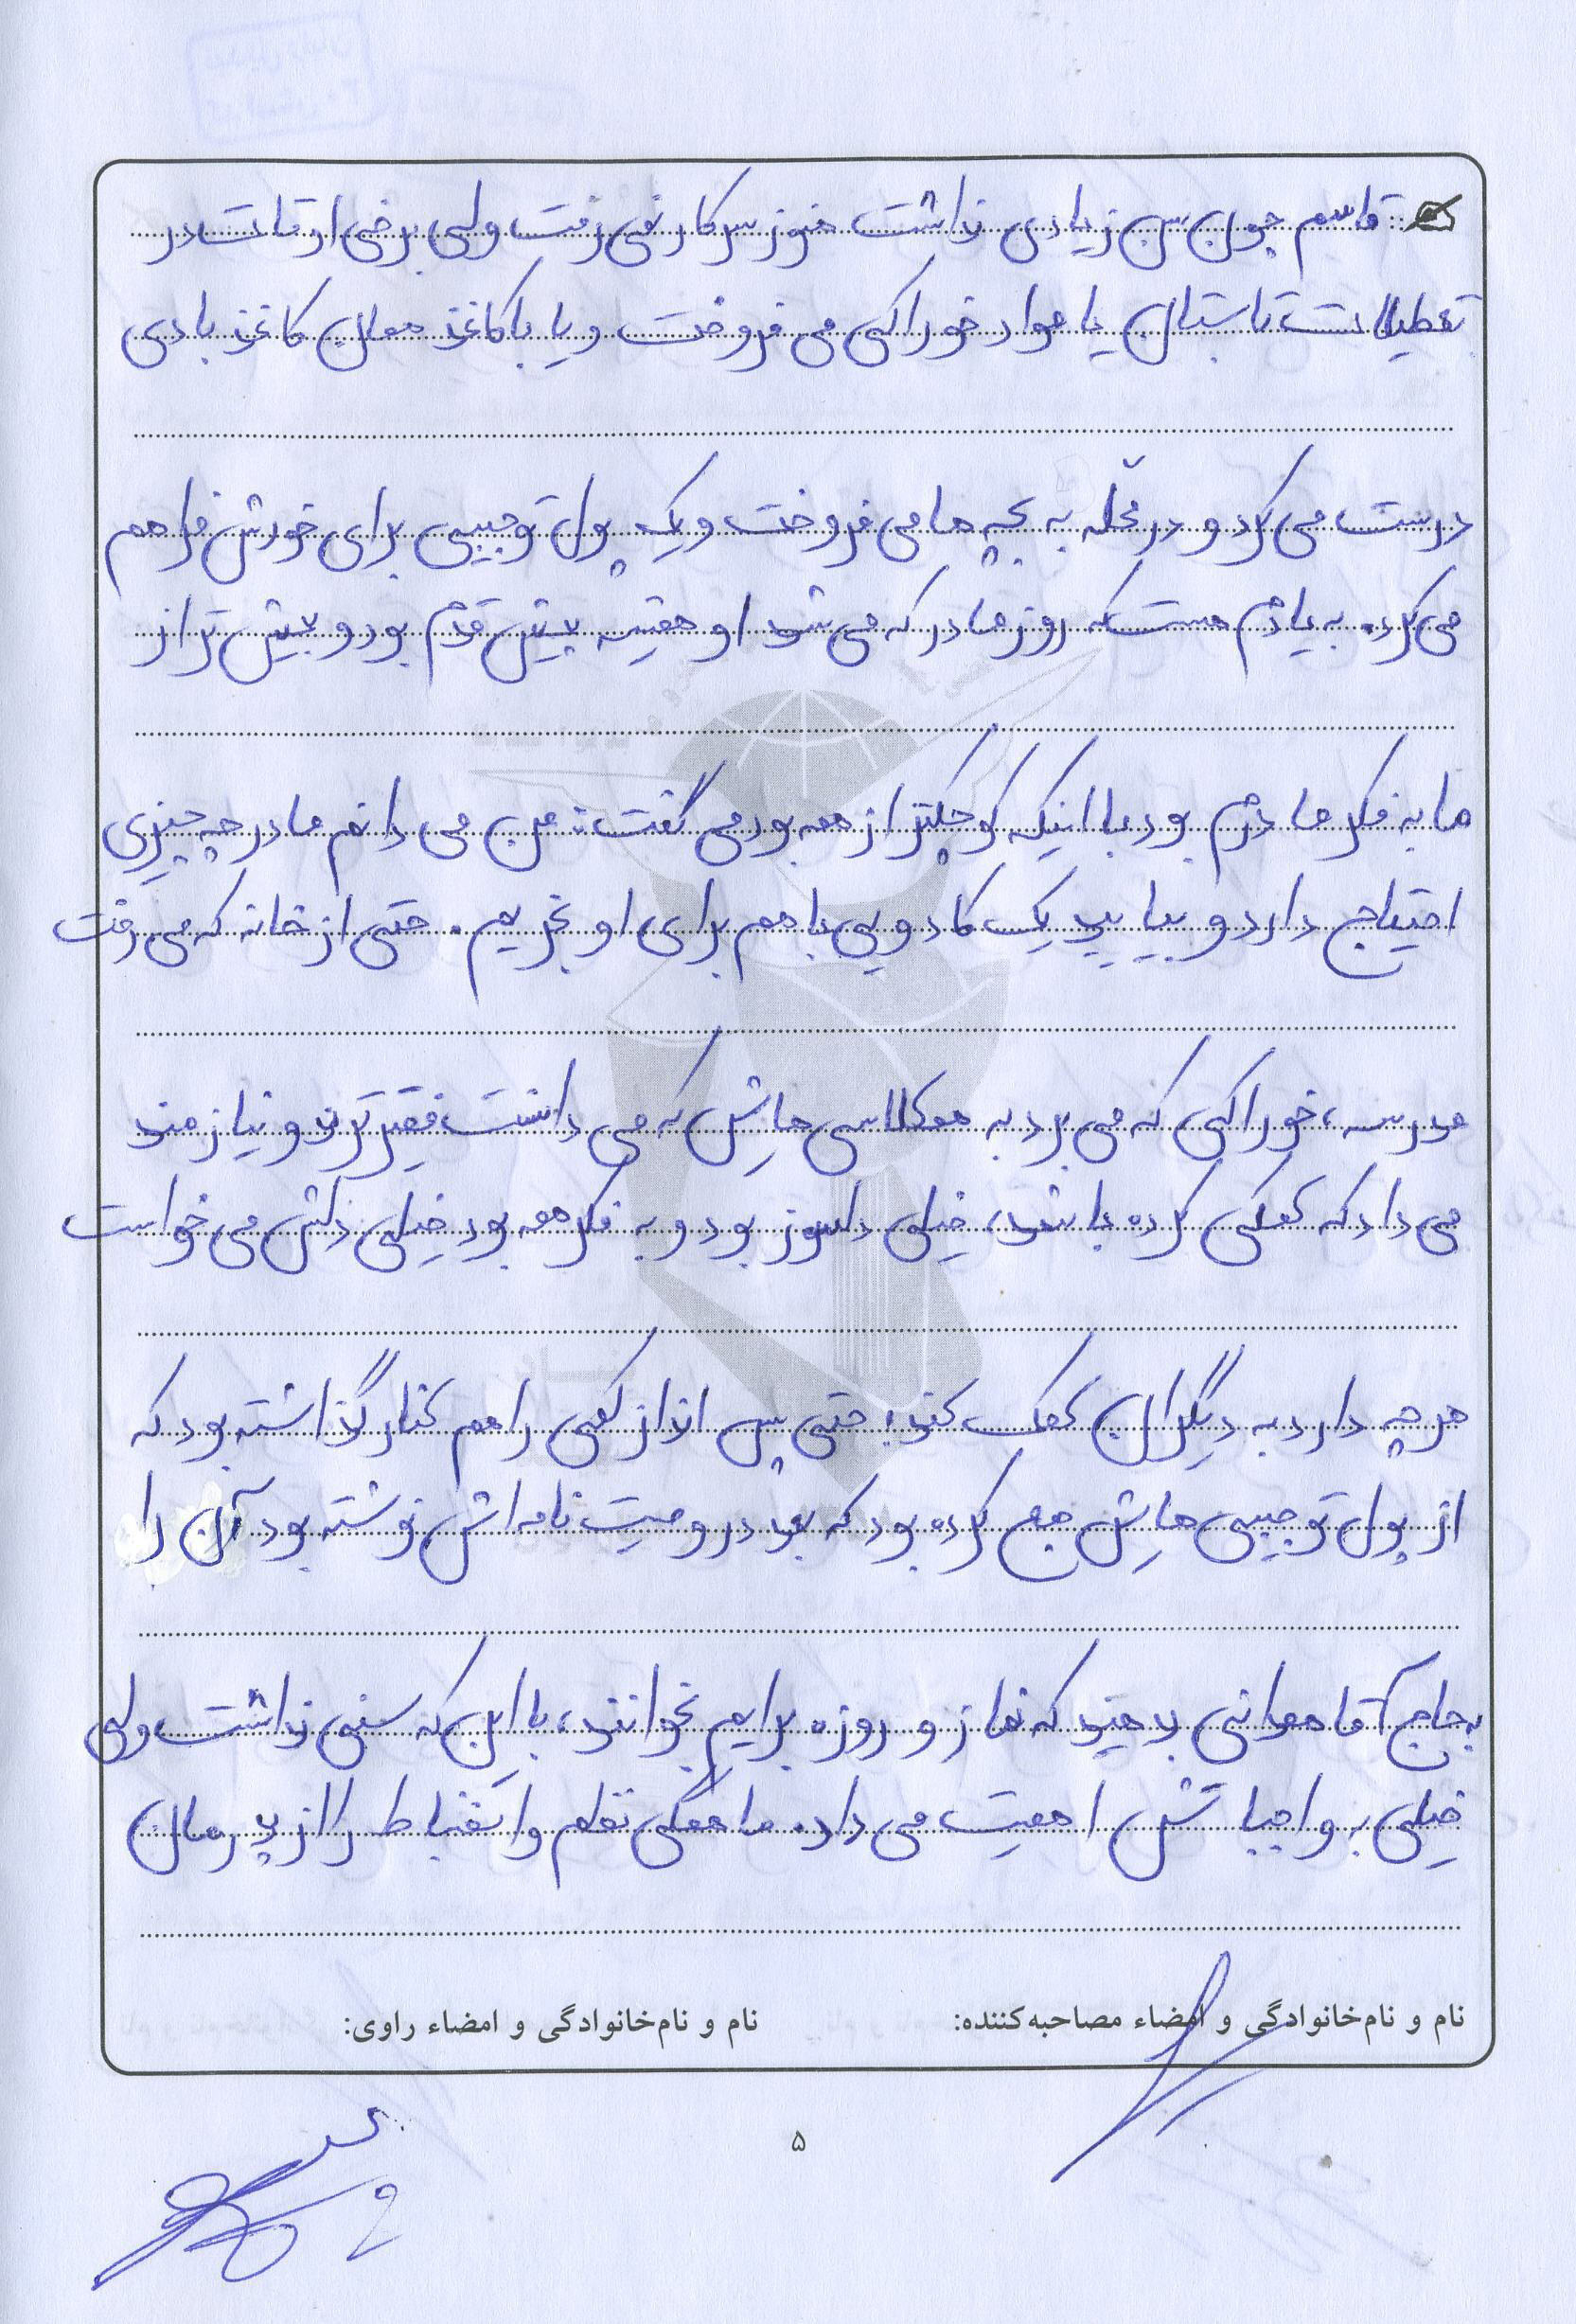 قاسم چون سن زیادی نداشت هنوز سر کار نمی رفت ولی برخی اوقات در
تعطیلات تابستان یا مواد خوراکی می فروخت و یا با کاغذ همان کاغذ بادی
درست می کرد و در محلّه به بچه ها می فروخت و یک پول تو جیبی برای خودش فراهم
می کرد. به یادم هست که روز مادر که می شد او همیشه پیش قدم بود و بیش تر از
ما به فکر مادرم بود با اینکه کوچکتر از همه بود می گفت: من می دانم مادر چه چیزی
احتیاج دارد و بیایید یک کادویی با هم برای او بخریم. حتی از خانه که می رفت
مدرسه، خوراکی که می برد به همکلاسی هایش که می دانست فقیرترند و نیازمند
می داد که کمکی کرده باشد، خیلی دلسوز بود و به فکر همه بود خیلی دلش می خواست
هر چه دارد به دیگران کمک کند؛ حتی پس انداز کمی را هم کنار گذاشته بود که
از پول تو جیبی هایش جمع کرده بود که بعد در وصیت نامه اش نوشته بود آن را
به حاج آقا همدانی بدهید که نماز و روزه برایم بخوانند، با این که سنی نداشت ولی
خیلی به واجباتش اهمیت می داد. ما همگی نظم و انضباط را از پدرمان
نام و نام‌خانوادگی و امضاء مصاحبه‌کننده:
نام و نام‌خانوادگی و امضاء راوی:
۵